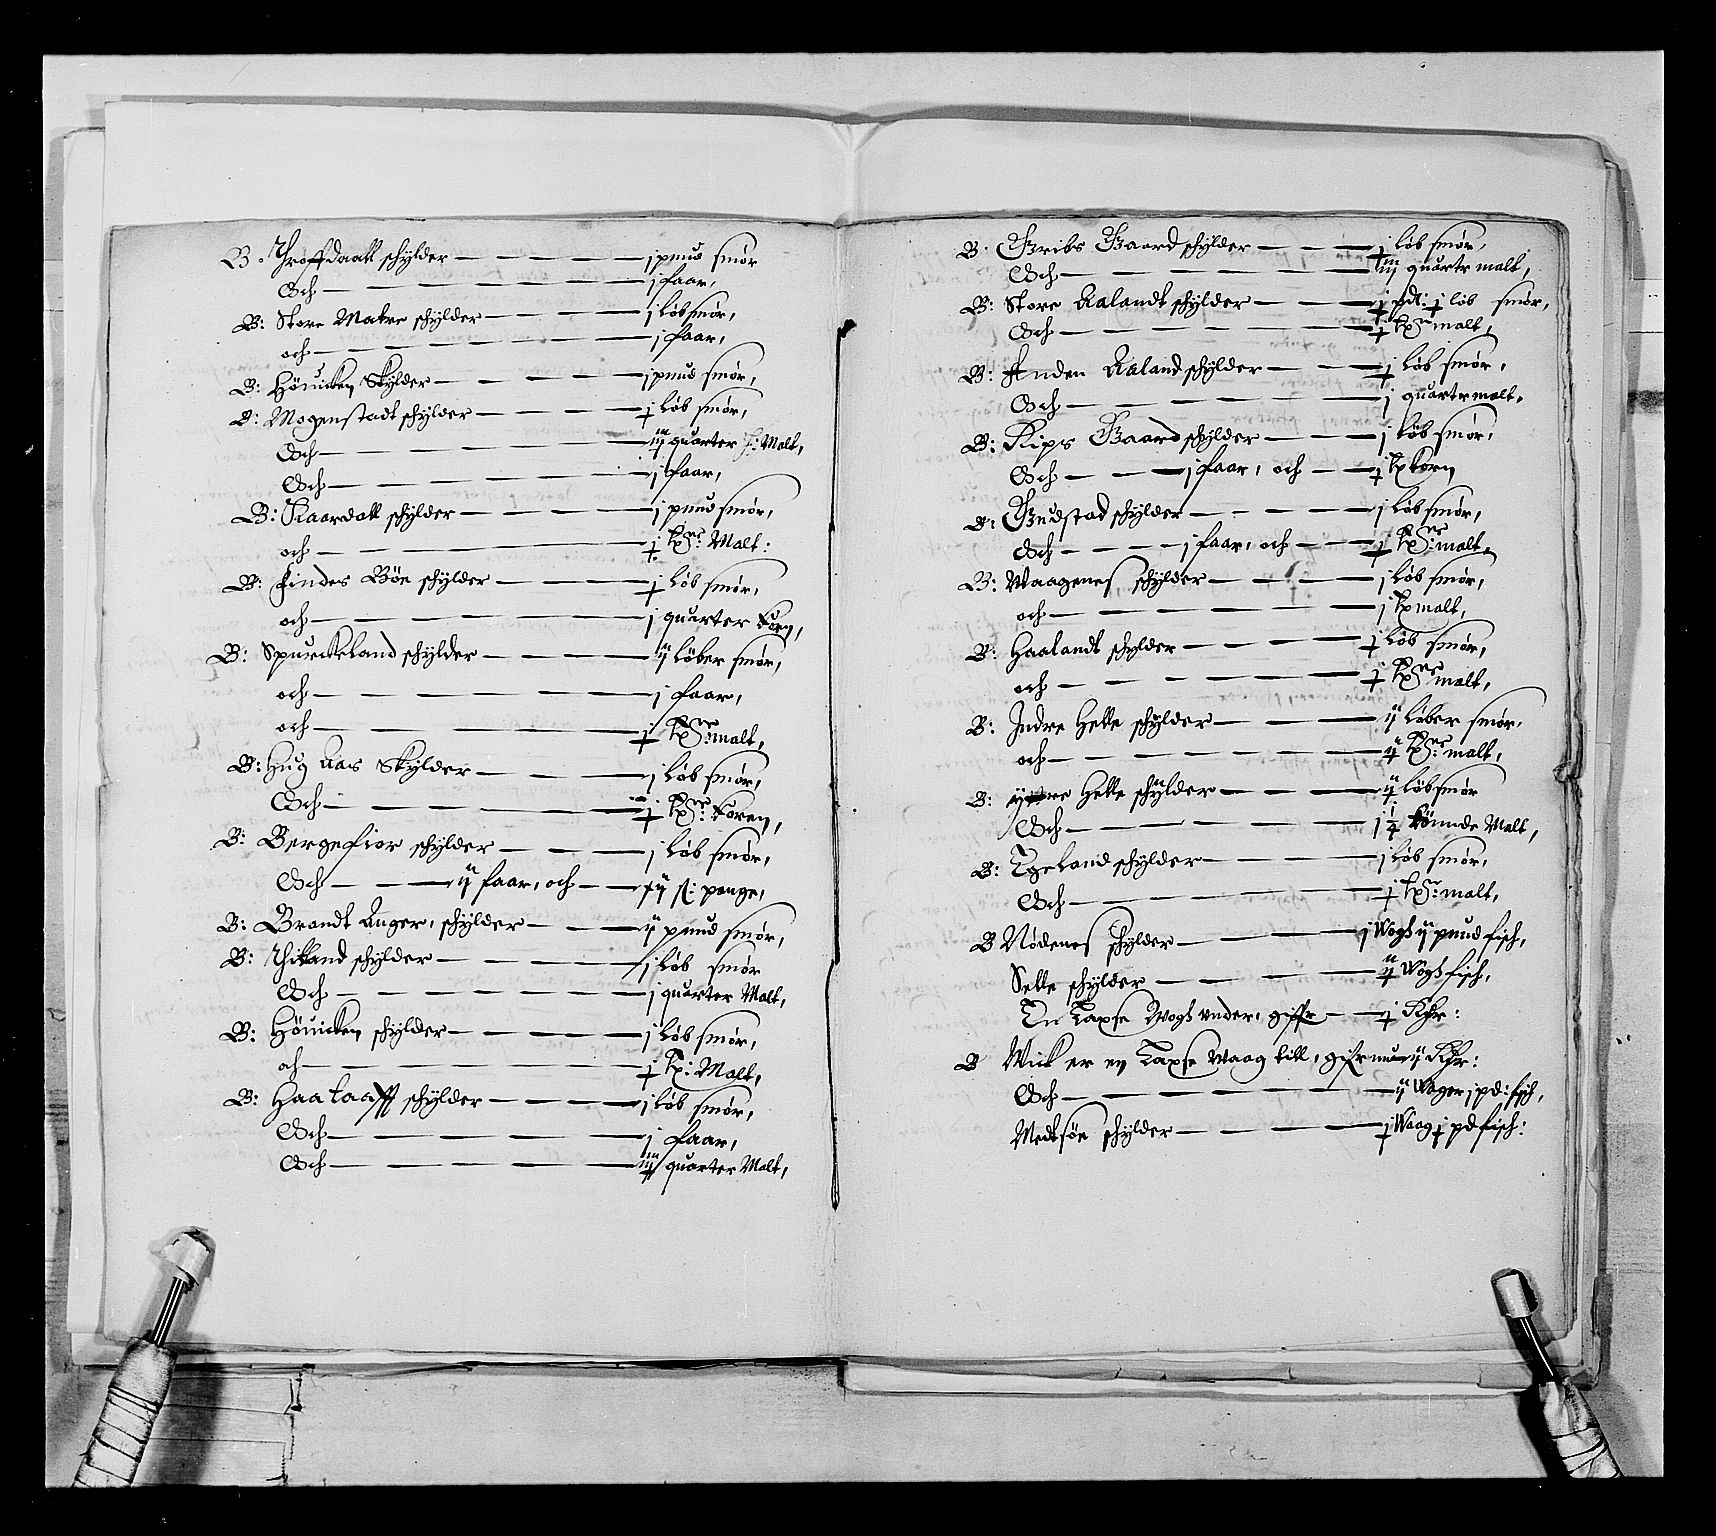 B: Froffdaall schylder — — — — j pund smör
Och — — — — j faar,
B: Store Matre schylder — — — j löb smör,
och — — — — j faar,
B: Höuicken Skylder — — — — j pund smör,
B: Mogenstadt schylder — — — j löb smör,
Och — — — — iij quarter Malt,
Och — — — — j faar,
B: Kaardall schylder — — — j pund smör,
och — — — — j Malt:
B: Findes Böe schylder — — — j löb smör,
och — — — — j quarter Korn,
B: Spuickeland schylder — — — ij löber smör,
och — — — — j faar,
och — — — — j malt,
B: Hug Aas Skylder — — — j löb smör,
Och — — — — j Koren,
B: Bergefior schylder — — — j löb smör,
Och — — ij faar, och — — penge,
B: Brandt Anger, schylder — — — ij pund smör,
B: Thilland schylder — — — j löb smör
Och — — — — j quarter Malt,
B: Höuicken schylder — — — j löb smör,
och — — — — j Malt,
B: Haataaff schylder — — — j löb smör,
Och — — — — j faar,
Och — — — — iij quarter Malt,
B: Gribs Gaard schylder — — — j löb smör,
Och — — — — iij quartr malt,
B: Store Aalandt schylder — — — j pd: j löb smör,
Och — — — — j malt,
B: Anden Aaland schylder — — — j löb smör,
Och — — — — j quartr malt,
B: Kips Gaard schylder — — — j löb smör,
Och — — — j faar, och — — j korn
B: Gudstad schylder — — — j löb smör,
Och — — — j faar, och — — j malt,
B: Waagenes schylder — — — j löb smör,
och — — — — j malt,
B: Haalandt schylder — — — j löb smör,
och — — — — j malt,
B: Indre Helle schylder — — — ij löber smör,
och — — — — ij malt,
B: ytre Helle schylder — — — ij löb smör
Och — — — — j tönnde Malt,
B: Egeland schylder — — — j löb smör,
Och — — — — j malt,
B Nödenes schylder — — — j Wogh ij pund fisch,
Selle schylder — — — ij Wogh fisch,
En Laxse Wogh vnder, giffr — — j
B Wick er en Laxse Waag till, gifr ij
Och — — — — ij Wäger j pd: fisch,
Medksöe schylder — — — j Waag j pd fisch: